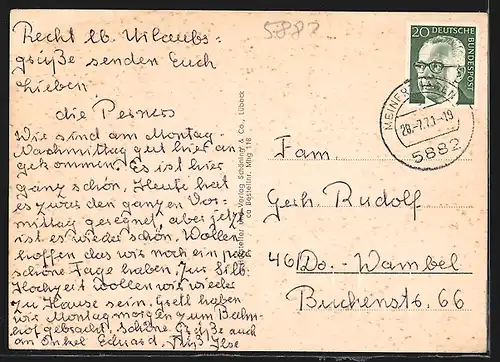 5882
Recht lb. Urlaubs-
grüße senden Euch
Lieben
die Perners
Wir sind am Montag-
Nachmittag gut hier an-
gekommen. Es ist hier
ganz schön, Heute hat
es zwar den ganzen Vor-
mittag geregnet, aber jetzt
ist es wieder schön. Wollen
hoffen das wir noch ein paar
schöne Tage haben. Zur Silb.
Hochzeit wollen wir wieder
zu Hause sein. Gretl haben
wir Montagmorgen zum Bahn-
hof gebracht, schöne Grüße auch
an Onkel Eduard. Gruß Ilse
Hersteller und Verlag Schöning & Co., Lübeck
Bestellnr. Mhg 116
20 DEUTSCHE
BUNDESPOST
MEINERZHAGEN
28.-7.73.-19
5882
Fam.
Gerh. Rudolf
46 Do.-Wambel
Buchenstr. 66